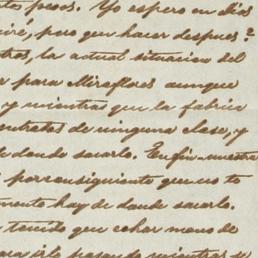 pesos. Yo espero en dias
iré, pero que hacer despues?
tros, la actual situacion del
a para Miraflores aunque
y mientras que la fabrica
entratos de ninguna clase, y
de donde sacarlo. En fin nuestra
porconsiguiente que no te
mente hay de donde sacarlo.
tenido que echar mano de
pasando mientras se